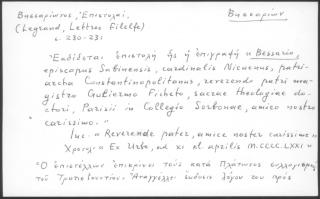 Βησσαρίωνος, Ἐπιστολαί,
Βησσαρίων
(Legrand, Lettres Filelfe)
σ. 230-231
Ἐκδίδεται ἐπιστολὴ ἧς ἡ ἐπιγραφή « Bessario,
episcopus Sabinensis, cardinalis Nicenus, patri-
archa Constantinopolitanus, reverendo patri ma-
gistro Guliermo Fisheto, sacrae theologiae do-
ctori, Parisii in Collegio Sorbonae, amico nostro
carissimo. »
Inc. « Reverende pater, amice noster carissime »
Χρονολ. « Ex Urbe, ad xi kl aprilis M.CCCC.LXXI »
Ὁ ἐπιστέλλων ἐπικρίνει τοὺς κατὰ Πλάτωνος συλλογισμοὺς
τοῦ Τραπεζουντίου. Ἀναγγέλλει ἔκδοσιν λόγου του πρὸς